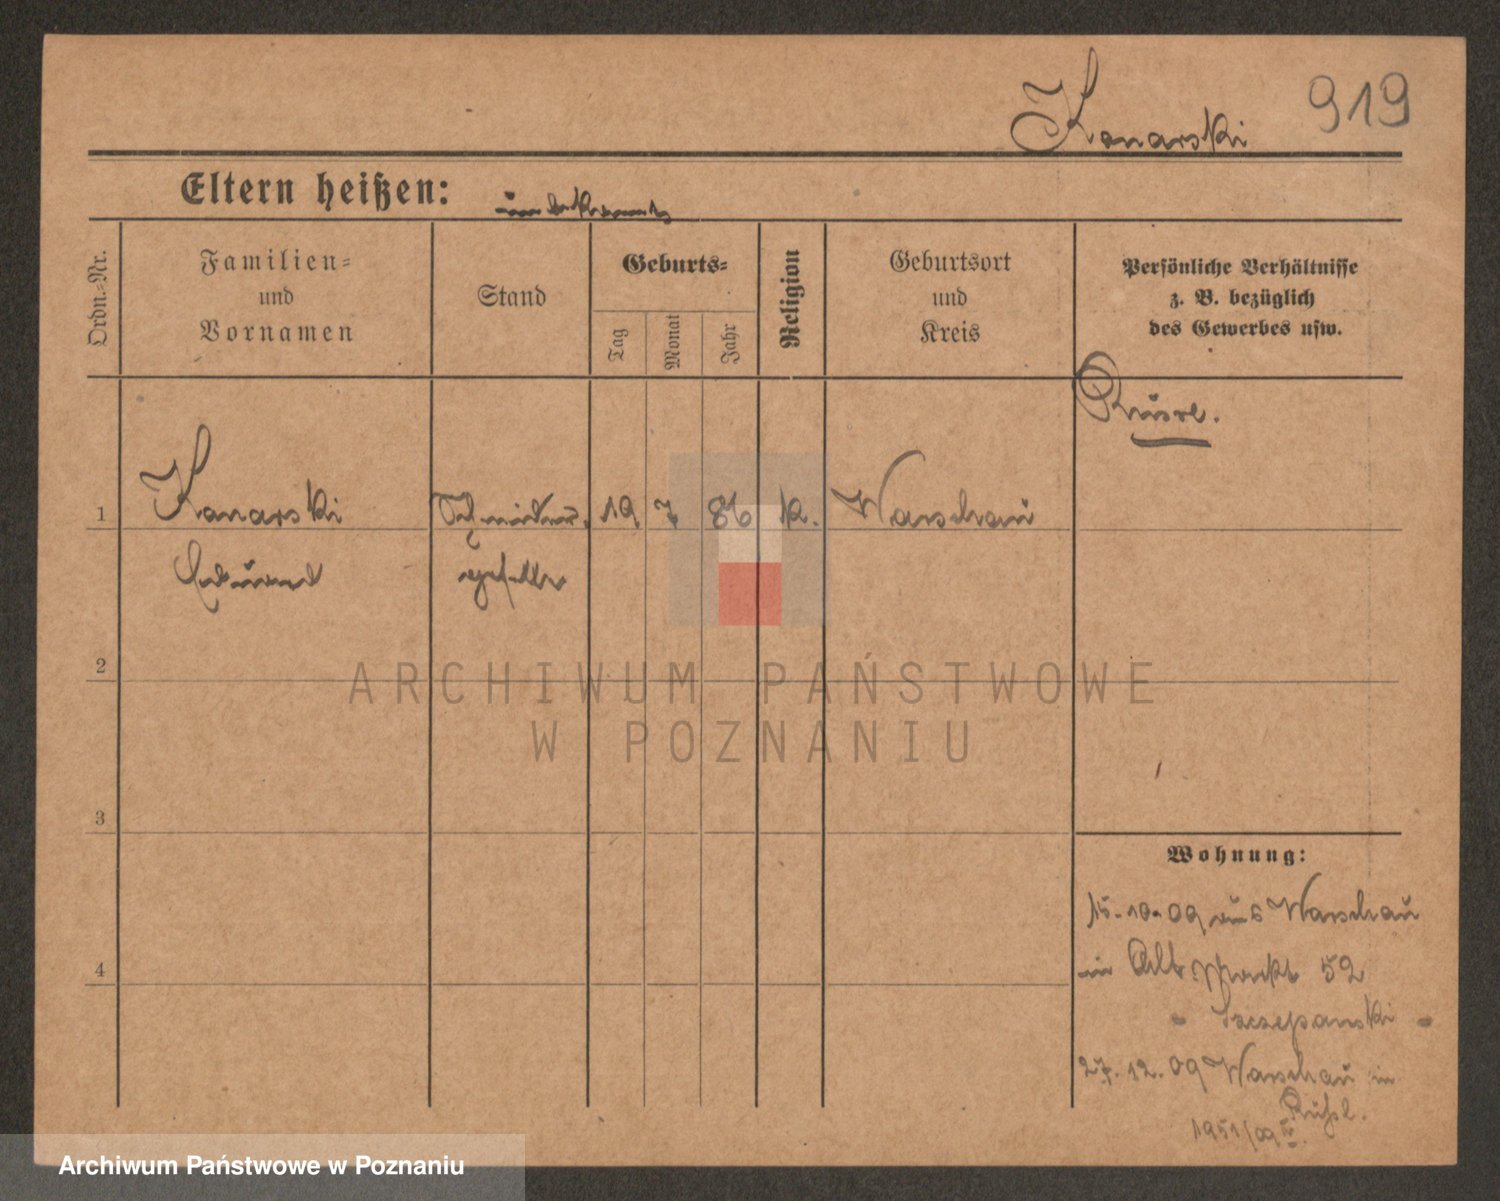 919
Kanarski
Eltern heißen: unbekannt
Ordn.-Nr.
Familien-
und
Vornamen
Stand
Geburts-
Tag
Monat
Jahr
Religion
Geburtsort
und
Kreis
Persönliche Verhältnisse
z. B. bezüglich
des Gewerbes usw.
Russe.
1 Kanarski Schneider- 19 7 86 k. Warschau
Eduard geselle
2
3
4
Wohnung:
15.10.09 aus Warschau
in Alt Markt 52
- Szczepanski -
27.12.09 Warschau in
Rußl.
1951/09 IV.
ARCHIWUM PAŃSTWOWE
W POZNANIU
Archiwum Państwowe w Poznaniu